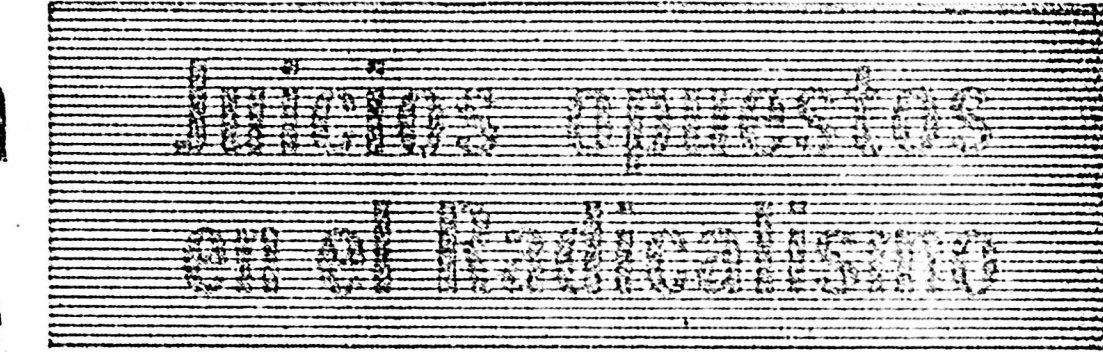 Juicios opuestos
en el Radicalismo